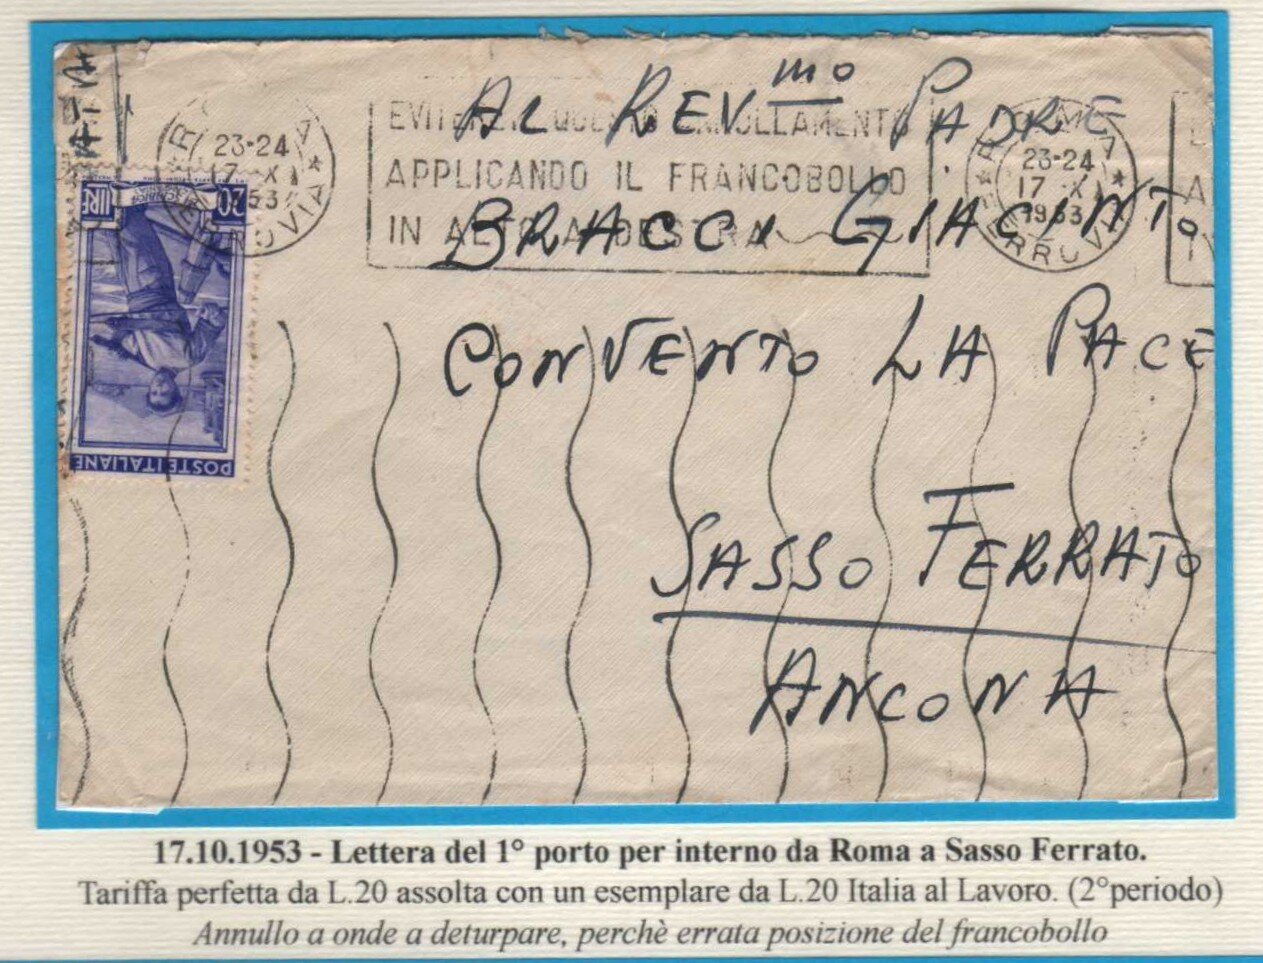 AL REV.mo PADRE
BRACCI GIACINTO
CONVENTO LA PACE
SASSO FERRATO
ANCONA
EVITERETE QUESTO ANNULLAMENTO
APPLICANDO IL FRANCOBOLLO
IN ALTO A DESTRA
ROMA
23-24
17 · X
1953
FERROVIA
23-24
17 X
53
FERROVIA
20
LIRE
POSTE ITALIANE
17.10.1953 - Lettera del 1° porto per interno da Roma a Sasso Ferrato.
Tariffa perfetta da L.20 assolta con un esemplare da L.20 Italia al Lavoro. (2°periodo)
Annullo a onde a deturpare, perchè errata posizione del francobollo